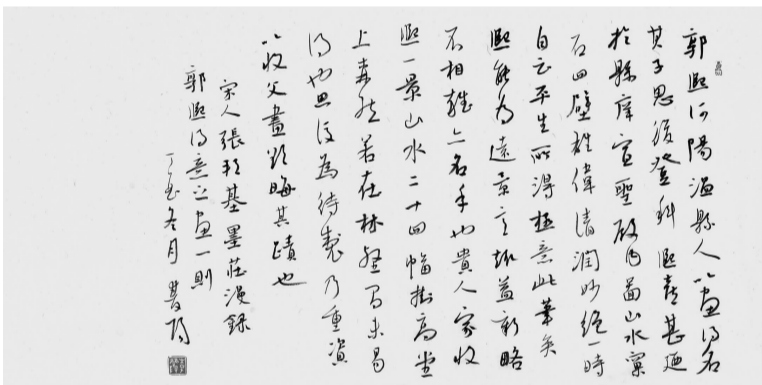 郭熙河陽溫縣人以畫得名
其子思後登科熙喜甚廼
於縣庠宣聖殿內圖山水窠
石四壁雄偉清潤妙絕一時
自云平生所得極意此筆矣
熙能為遠景之趣益新略
不相雜亦名手也貴人家收
熙一景山水二十四幅掛高堂
上森然若在林壑間未易
得也思後為待製乃重資
以收父畫欲晦其蹟也
宋人張邦基墨莊漫錄
郭熙得意之畫一則
丁亥冬月